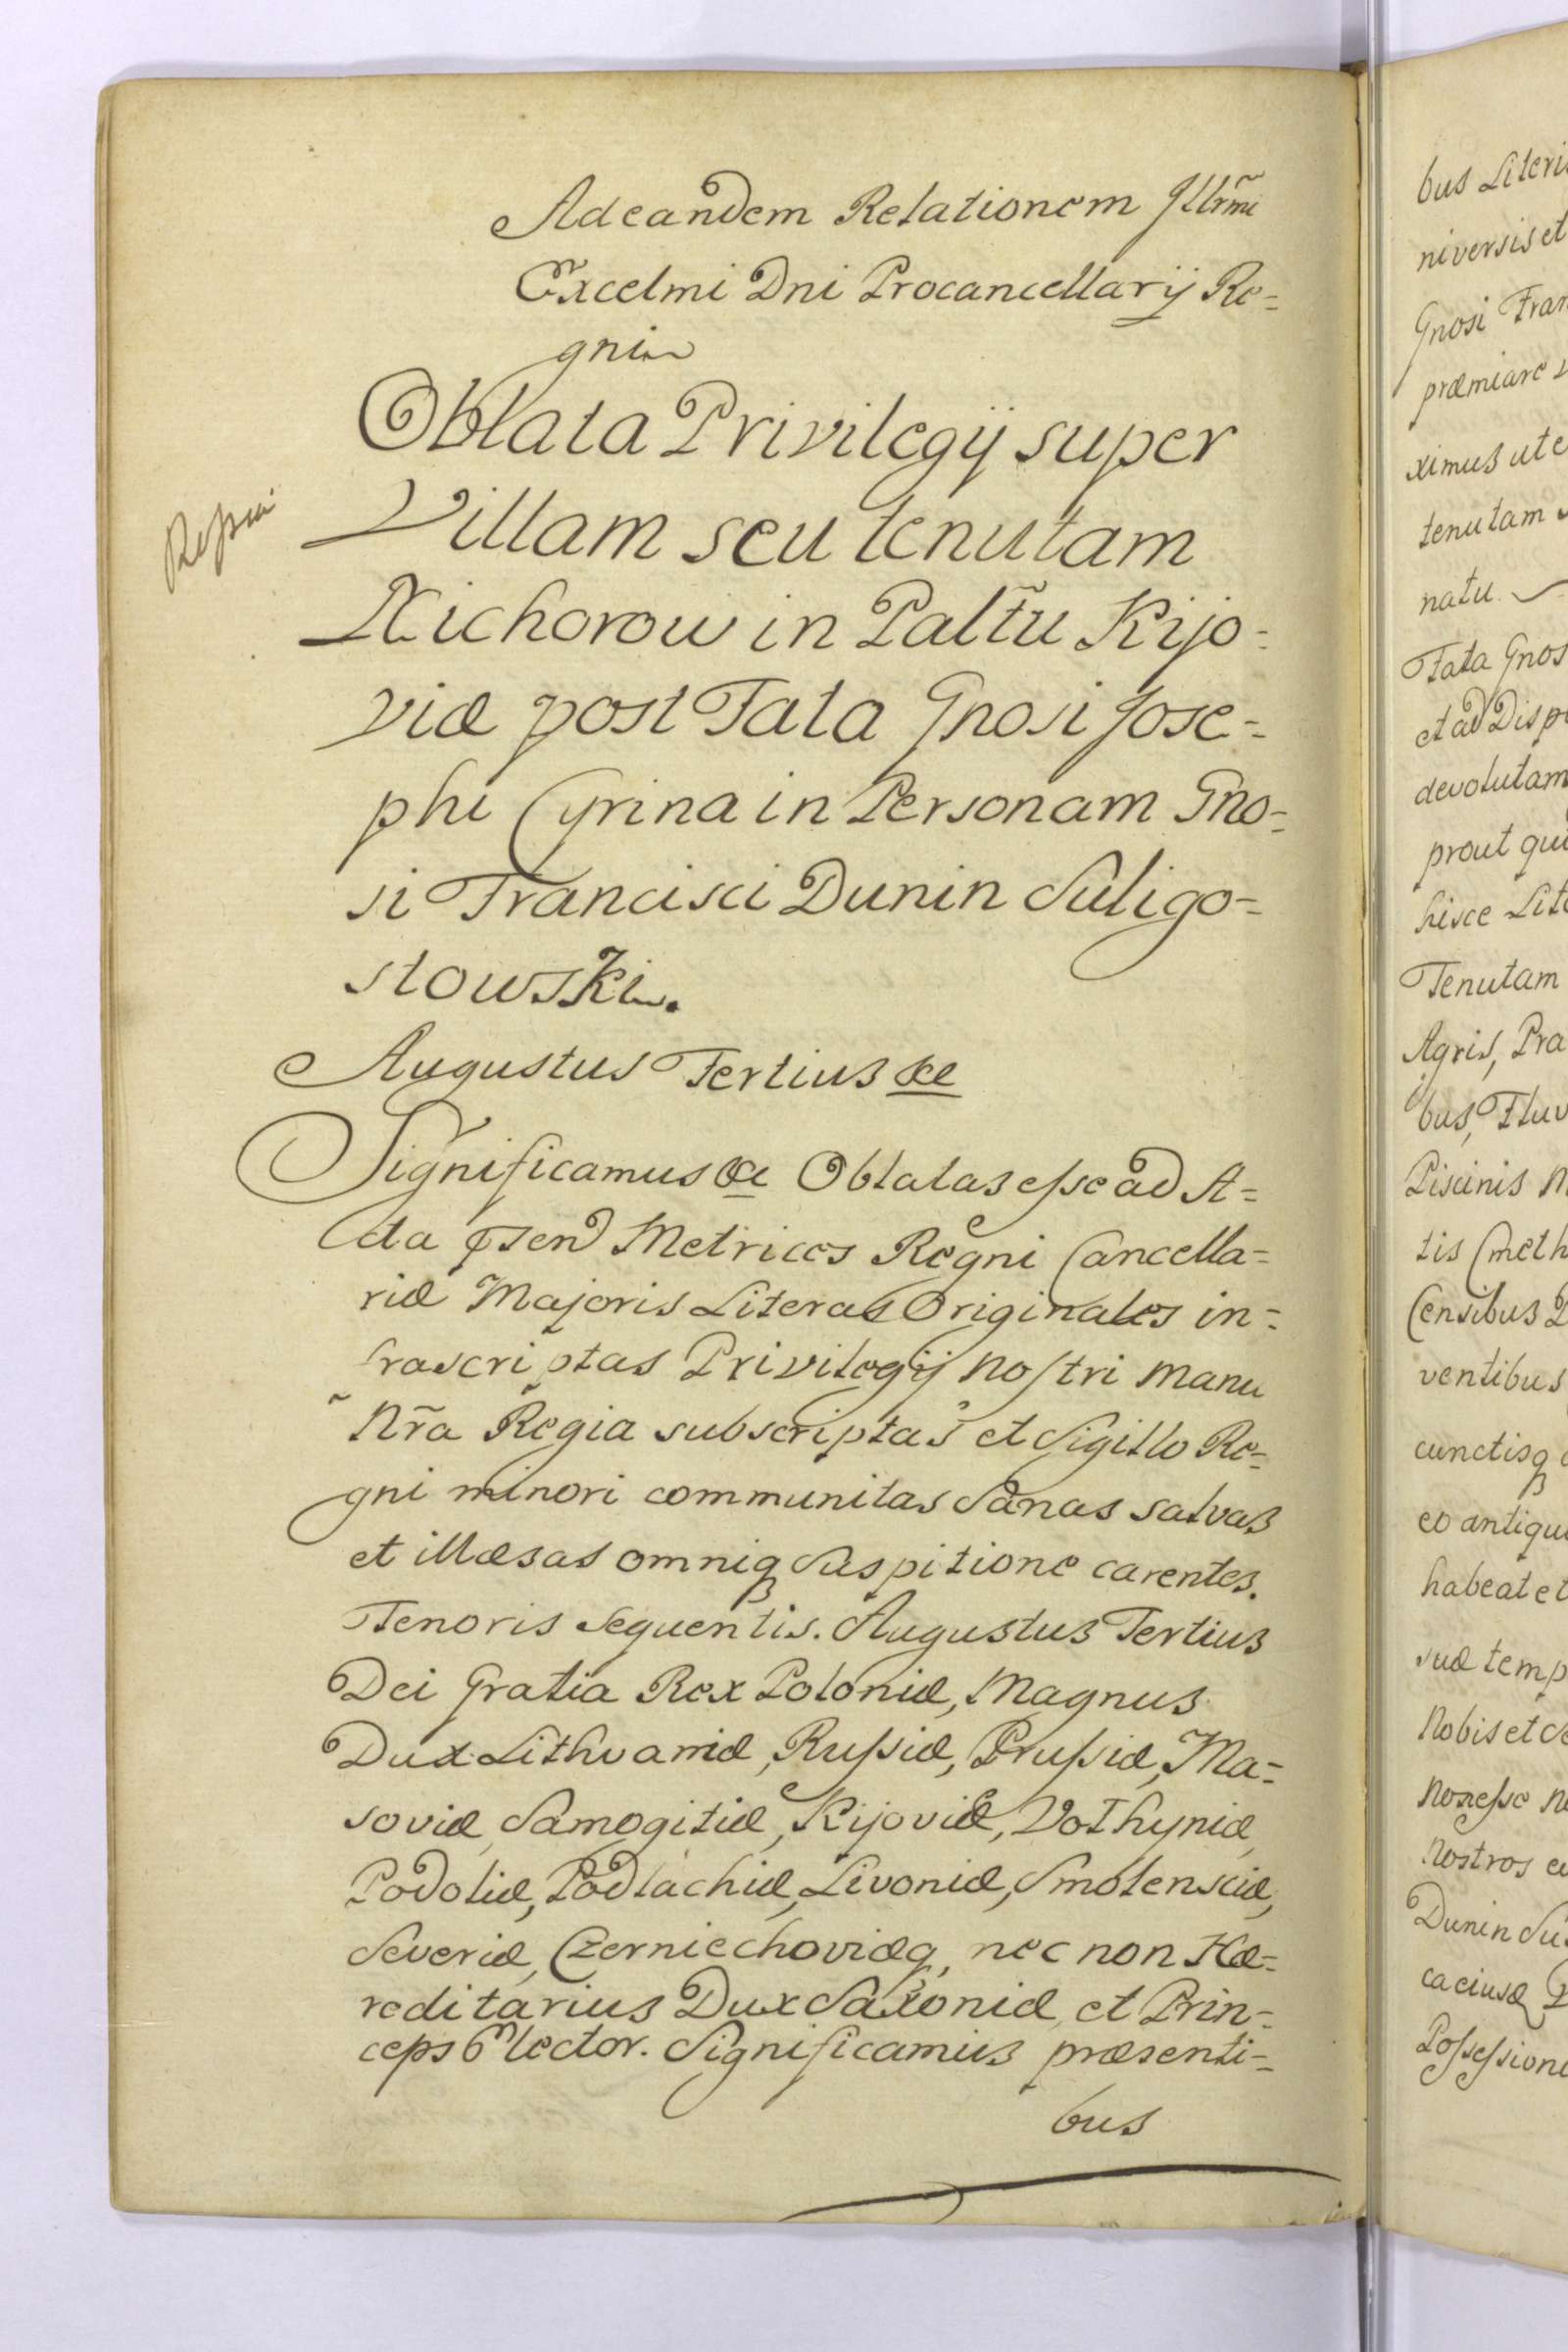 Ad eandem Relationem Illrm̃i
Excelmi Dni Procancellarij Re=
gni
Oblata Privilegij super
Villam seu tenutam
Nichorow in Paltũ Kijo=
viæ post Fata Gnosi Jose=
phi Cyrina in Personam Gno=
si Francisci Dunin Suligo=
stowski.
Augustus Tertius &c
Significamus &c Oblatas esse ad A=
cta p̱sen Metrices Regni Cancella=
riæ Majoris Literas Originales in=
frascriptas Privilegij nostri manu
Nr̃a Regia subscriptas et Sigillo Re=
gni minori communitas Sanas salvas
et illæsas omniq̃ Suspitione carentes.
Tenoris Sequentis. Augustus Tertius
Dei Gratia Rex Poloniæ, Magnus
Dux Lithvaniæ, Russiæ, Prussiæ, Ma=
soviæ, Samogitiæ, Kijoviæ, Volhyniæ
Podoliæ, Podlachiæ, Livoniæ, Smolensciæ,
Severiæ, Czerniechoviæq, nec non Hæ=
reditarius Dux Saxoniæ, et Prin=
ceps Elector. Significamus præsenti=
bus
bus Literis
niversis et
Gnosi Fran
præmiare
ximus ut e
tenutam
natu
Fata Gnos
et ad Disp
devolutam
prout qui
hisce Lit
Tenutam
Agris, Pra
bus, Fluv
Piscinis
tis Cmeth
Censibus
ventibus
cunctisq
eo antiqu
habeat et
suæ temp
Nobis et
non esse
Nostros
Dunin Su
ca eiusd
Possessione